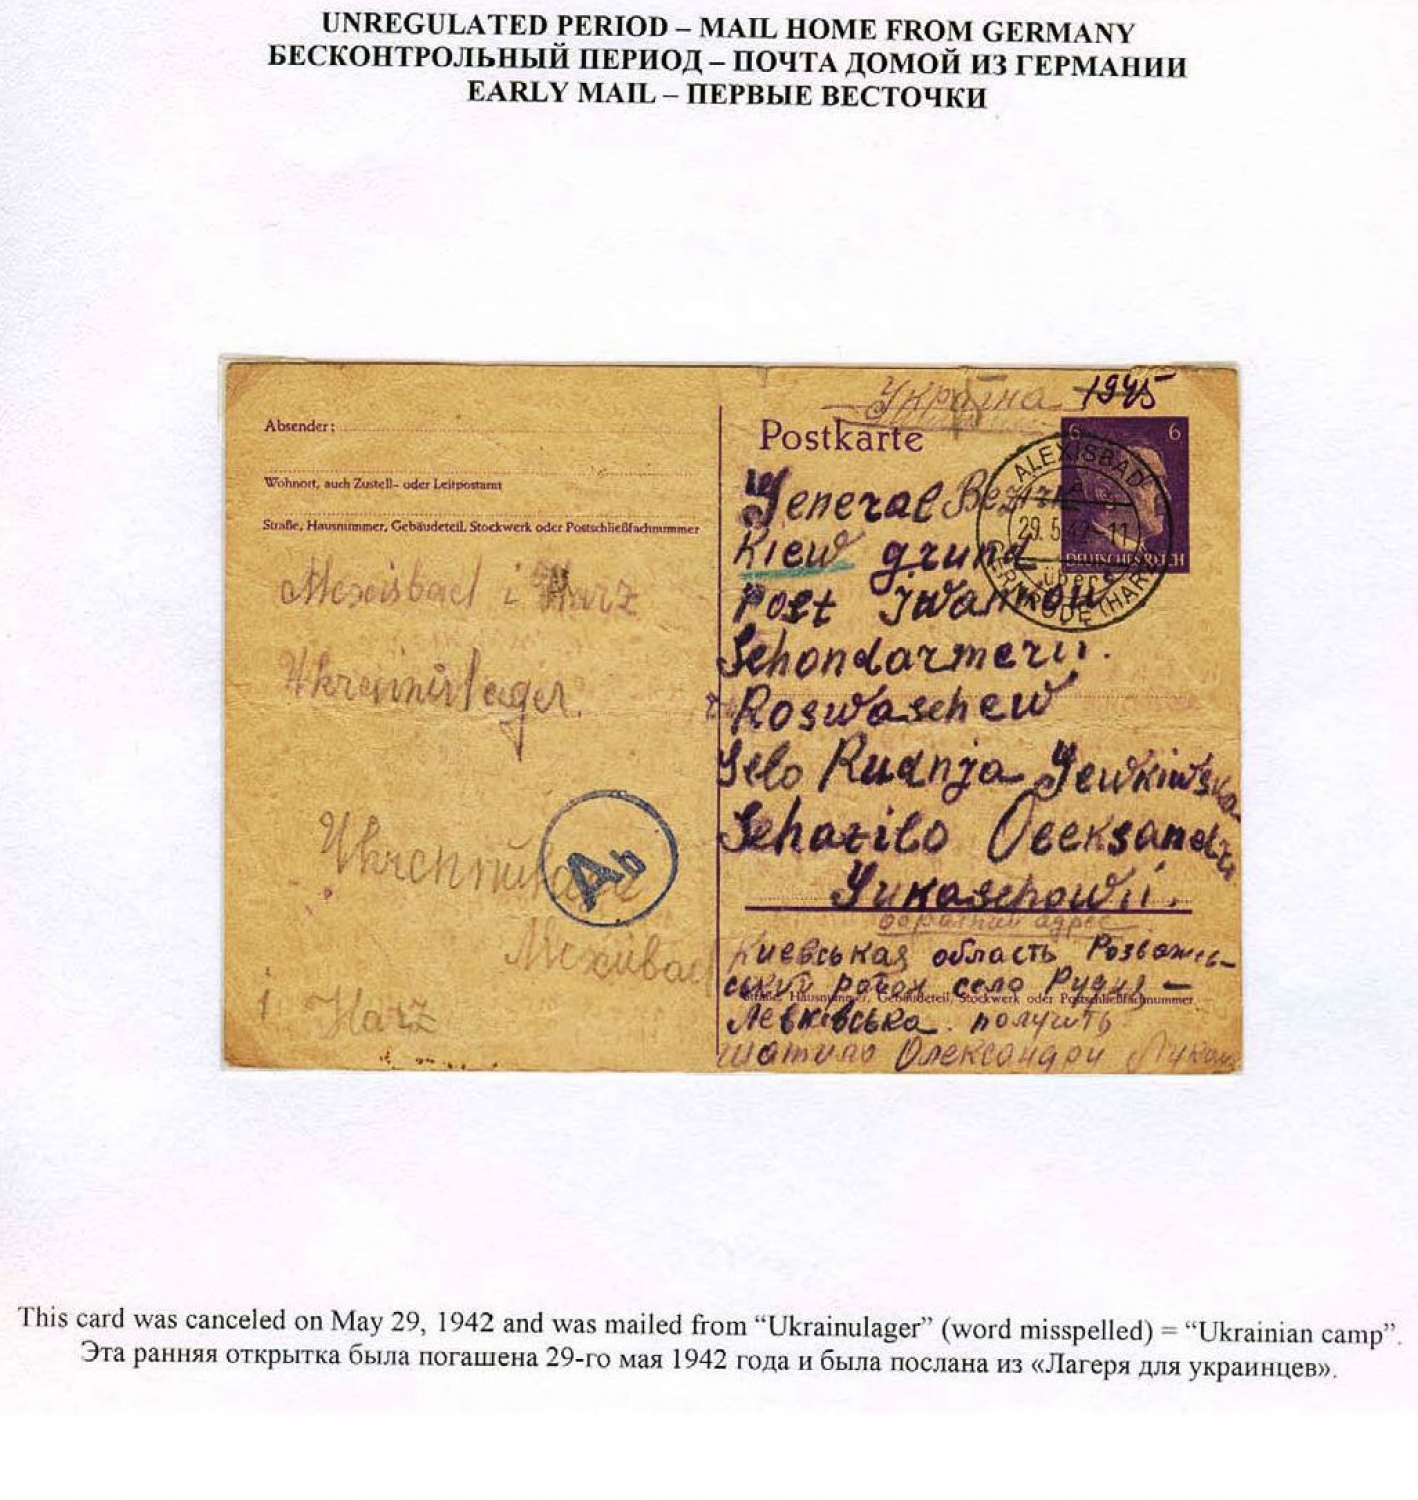 UNREGULATED PERIOD – MAIL HOME FROM GERMANY
БЕСКОНТРОЛЬНЫЙ ПЕРИОД – ПОЧТА ДОМОЙ ИЗ ГЕРМАНИИ
EARLY MAIL – ПЕРВЫЕ ВЕСТОЧКИ
Україна 1945
Absender:
Wohnort, auch Zustell- oder Leitpostamt
Straße, Hausnummer, Gebäudeteil, Stockwerk oder Postschließfachnummer
Alexisbad i Harz
Ukrainulager.
Ab
i Harz
Postkarte
6 6
DEUTSCHES REICH
ALEXISBAD
a
29.5.42-11
über
GERNRODE (HARZ)
General Bezirk
Kiew grund
Post Iwankow
Schondarmerii.
Roswaschew
Selo Rudnja Lewkiwska
Schatilo Oleksandri
Lukaschowii.
обратний адрес
Киевськая область Розважев-
ський район село Рудня –
Straße, Hausnummer, Gebäudeteil, Stockwerk oder Postschließfachnummer
Левківська получить
Шатило Олександри
This card was canceled on May 29, 1942 and was mailed from “Ukrainulager” (word misspelled) = “Ukrainian camp”.
Эта ранняя открытка была погашена 29-го мая 1942 года и была послана из «Лагеря для украинцев».